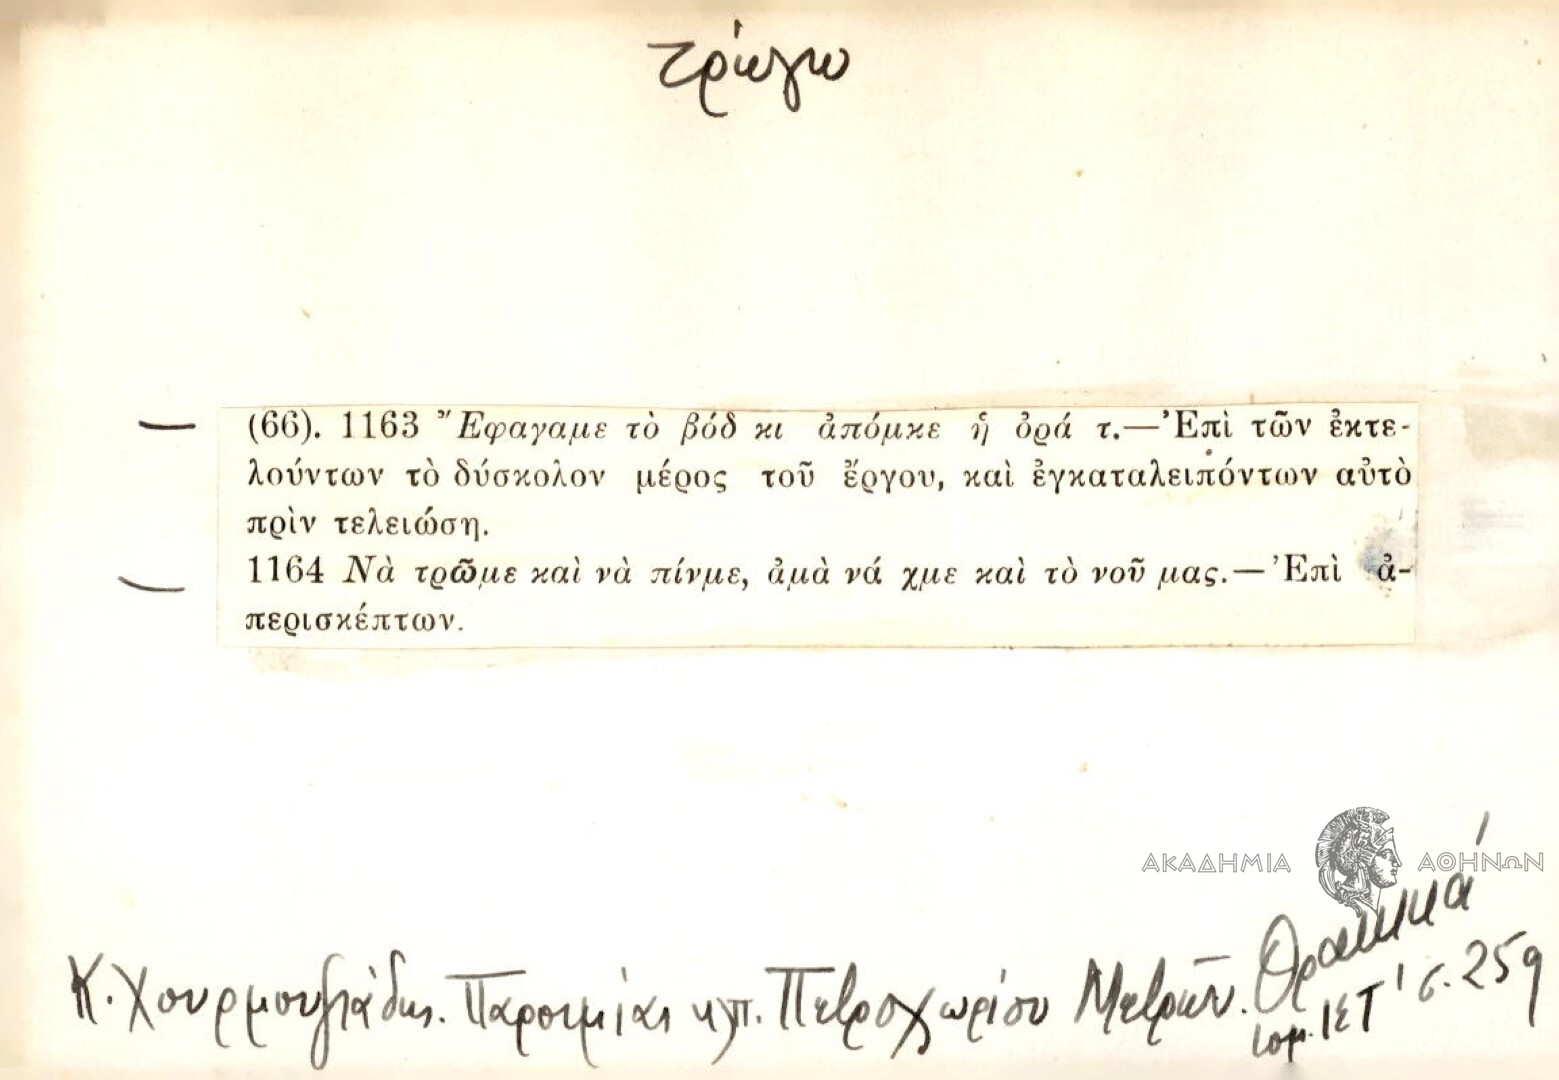 τρώγω
(66). 1163 Ἔφαγαμε τὸ βόδ κι ἀπόμκε ἡ ὀρά τ.—Ἐπὶ τῶν ἐκτε-
λούντων τὸ δύσκολον μέρος τοῦ ἔργου, καὶ ἐγκαταλειπόντων αὐτὸ
πρὶν τελειώση.
1164 Νὰ τρῶμε καὶ νὰ πίνμε, ἀμὰ νά χμε καὶ τὸ νοῦ μας.—Ἐπὶ ἀ-
περισκέπτων.
ΑΚΑΔΗΜΙΑ ΑΘΗΝΩΝ
Κ. Χουρμουζιάδης. Παροιμίαι κ.π. Πετροχωρίου Μετρῶν. Θρακικά
τομ. ΙΣΤ' σ. 259